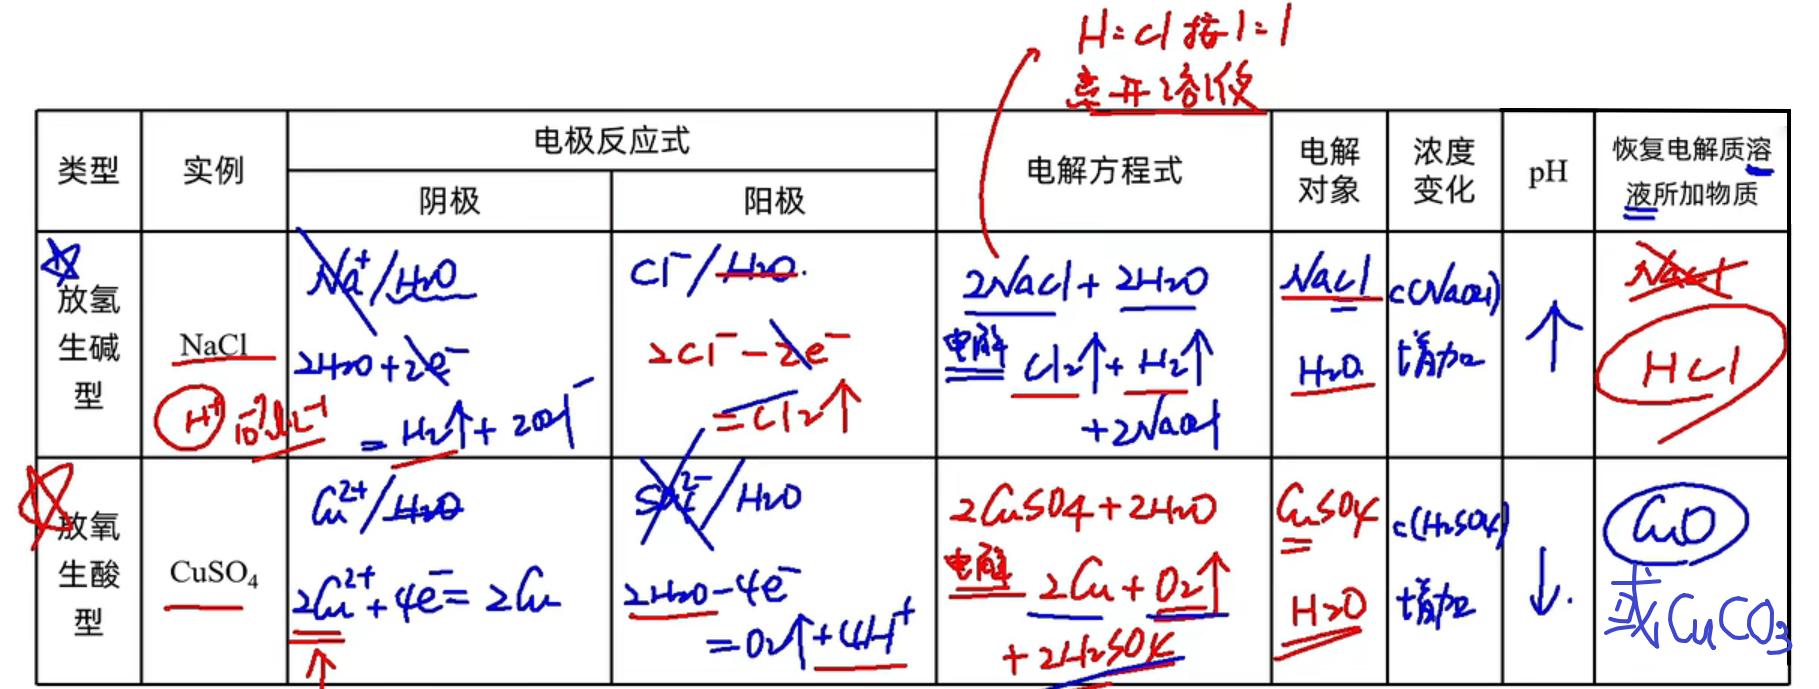 H=Cl 按1=1
离开溶液
类型
实例
电极反应式
阴极
阳极
电解方程式
电解
对象
浓度
变化
pH
恢复电解质溶
液所加物质
放氢
生碱
型
NaCl
H⁺ 10⁻⁷mol·L⁻¹
Na⁺/H₂O
2H₂O+2e⁻
=H₂↑+2OH⁻
Cl⁻/H₂O.
2Cl⁻-2e⁻
=Cl₂↑
2NaCl+2H₂O
电解 Cl₂↑+H₂↑
+2NaOH
NaCl
H₂O
c(NaOH)
增加
↑
NaCl
HCl
放氧
生酸
型
CuSO₄
Cu²⁺/H₂O
2Cu²⁺+4e⁻=2Cu
SO₄²⁻/H₂O
2H₂O-4e⁻
=O₂↑+4H⁺
2CuSO4+2H₂O
电解 2Cu+O₂↑
+2H₂SO4
CuSO4
H₂O
c(H₂SO4)
增加
↓.
CuO
或CuCO₃